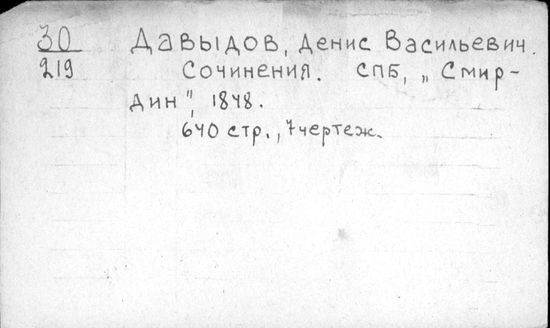 30 Давыдов, Денис Васильевич.
219 Сочинения. СПБ, „Смир-
дин", 1848.
640 стр., 7 чертеж.